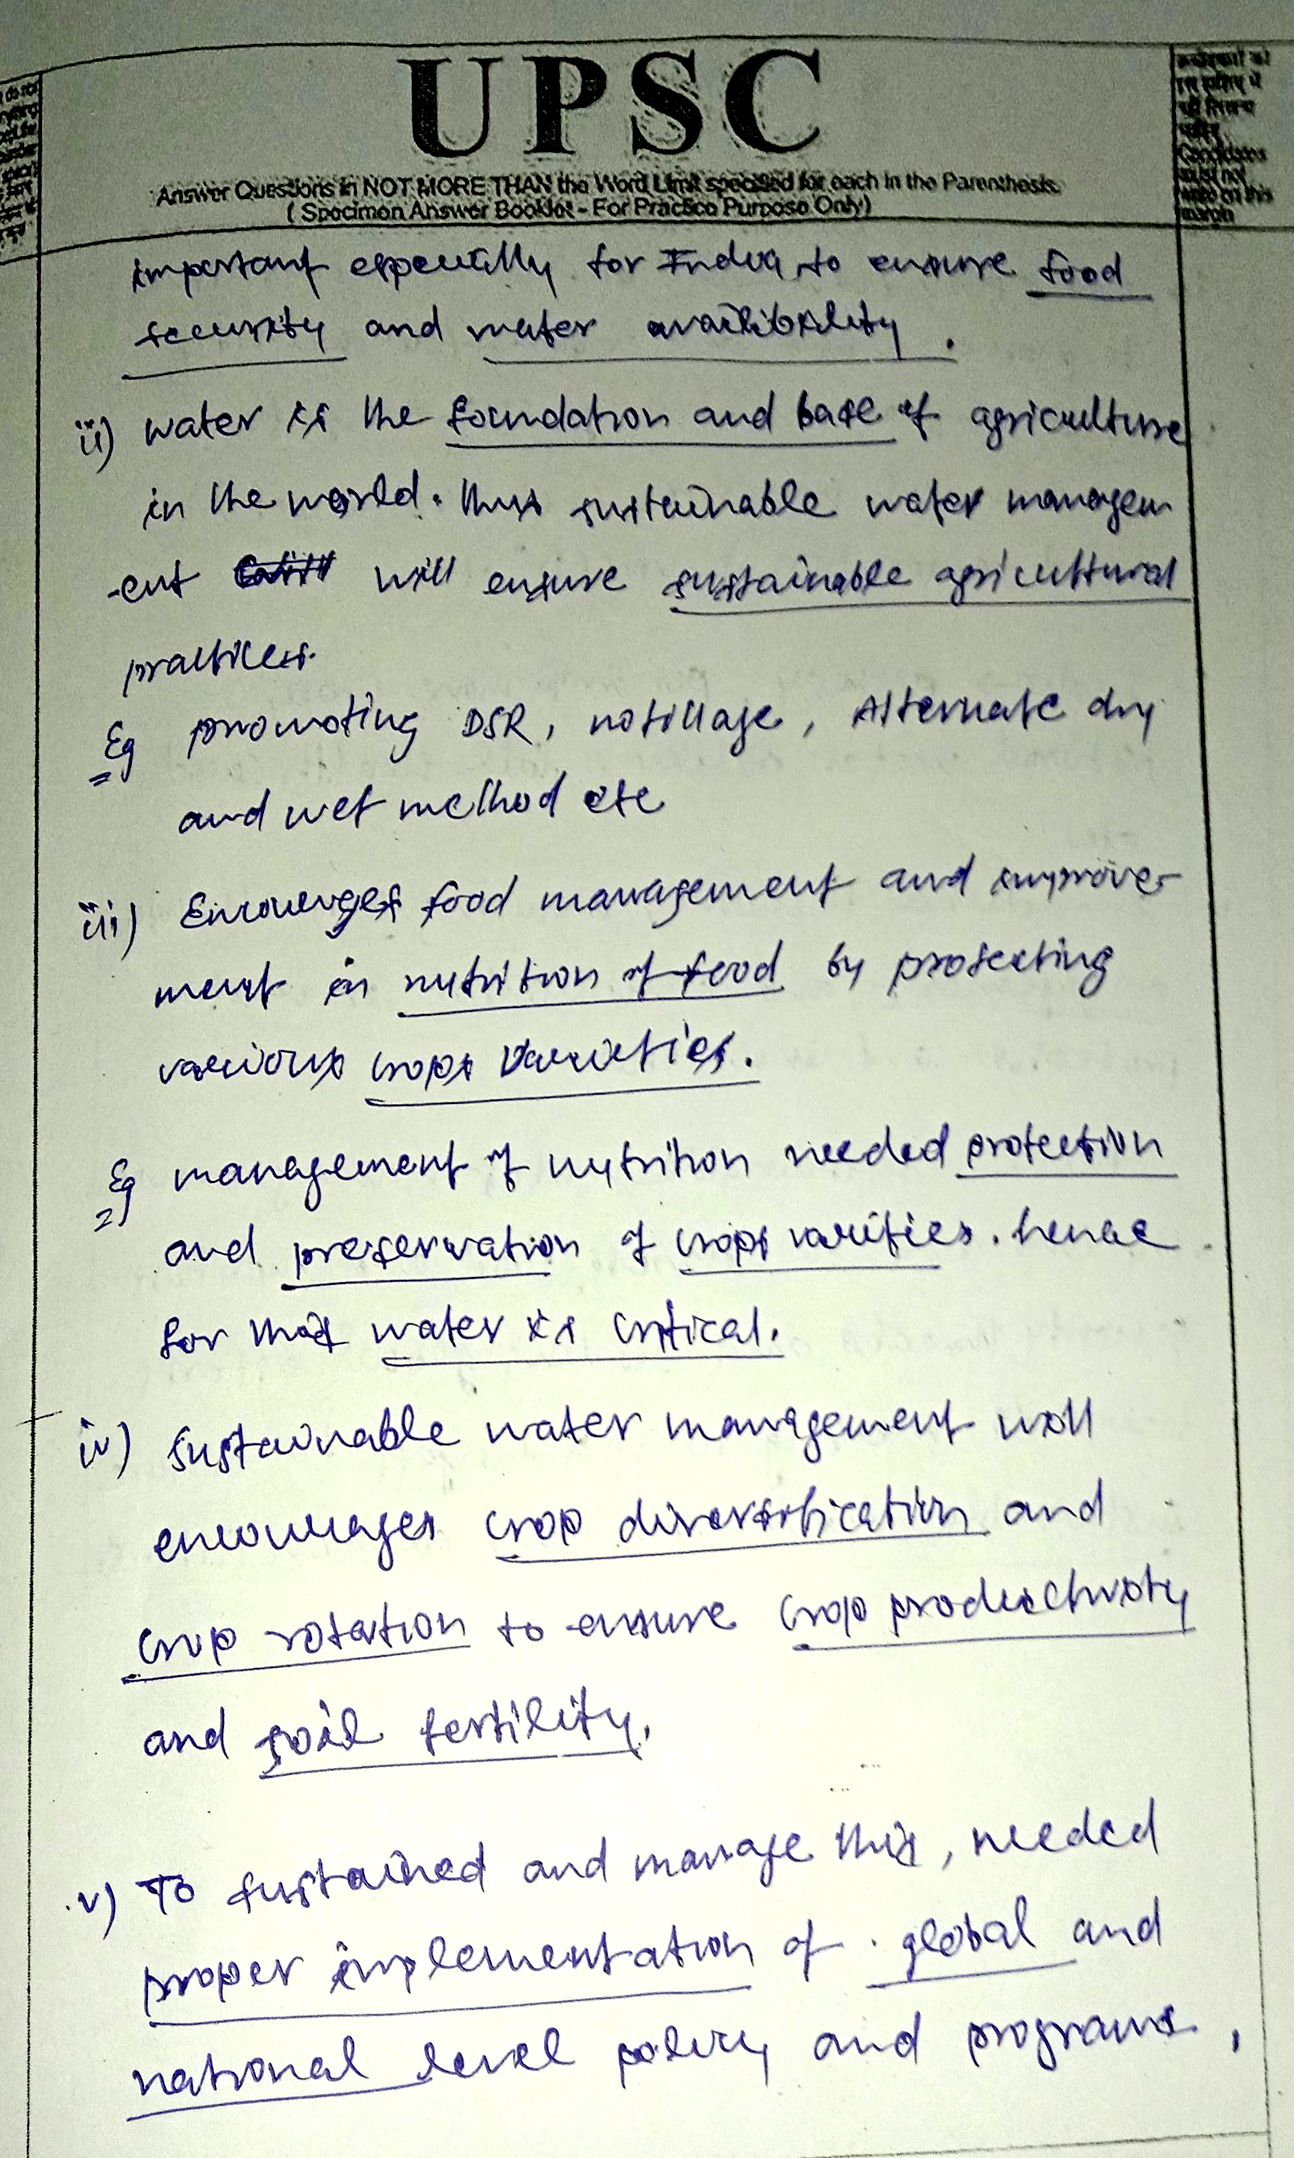 UPSC
Answer Questions in NOT MORE THAN the Word Limit specified for each in the Parenthesis.
( Specimen Answer Booklet - For Practice Purpose Only)
Candidates
must not
write on this
margin
important especially for India, to ensure food
security and water availibility.
ii) water is the foundation and base of agriculture
in the world. thus sustainable water managem
-ent will ensure sustainable agricultural
practices.
Eg promoting DSR, notillage, Alternate dry
and wet method etc
iii) Encourages food management and improve-
ment in nutrition of food by protecting
various crops varieties.
Eg management of nutrition needed protection
and preservation of crops varities. hence
for that water is critical.
iv) sustainable water management will
encourages crop diversification and
crop rotation to ensure crop productivity
and soil fertility.
v) To sustained and manage this, needed
proper implementation of global and
national level policy and programs,